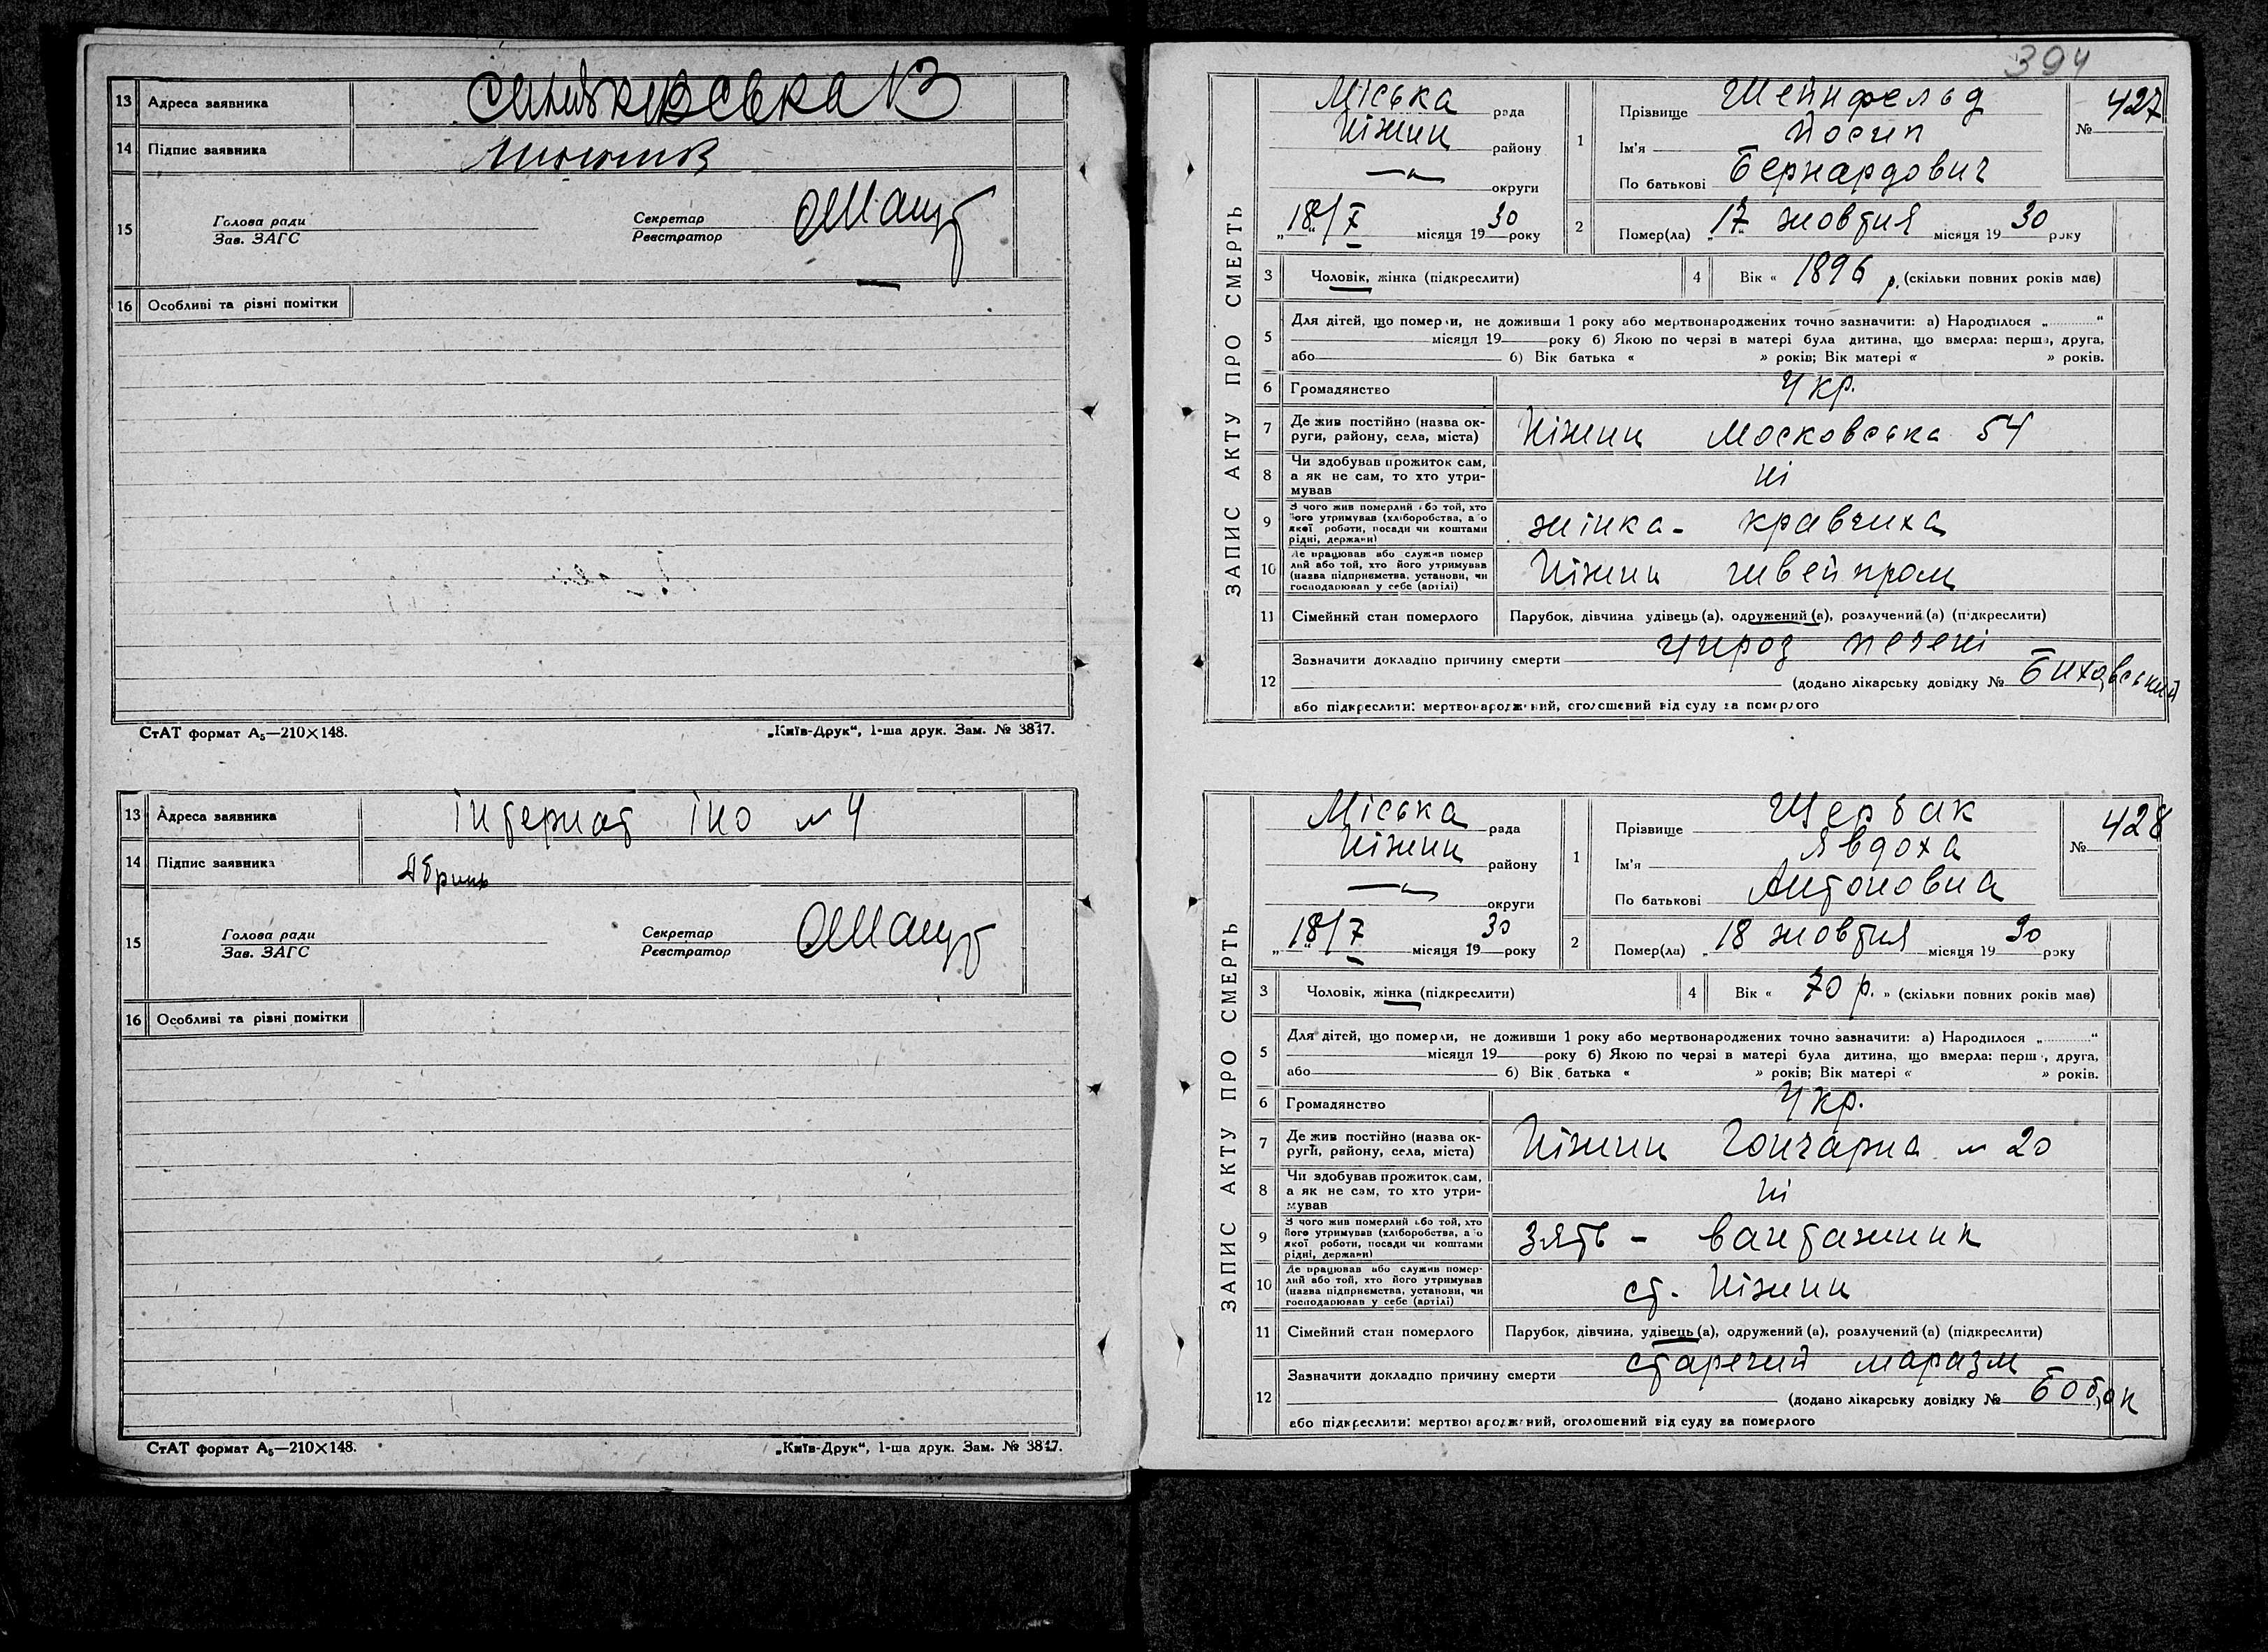 13 Адреса заявника
14 Підпис заявника
15 Голова ради
Зав. ЗАГС
Секретар
Реєстратор
16 Особливі та різні помітки
СтАТ формат А₅—210×148.
„Київ-Друк“, 1-ша друк. Зам. № 3817.
13 Адреса заявника інтернат іно № 4
14 Підпис заявника
15 Голова ради
Зав. ЗАГС
Секретар
Реєстратор
16 Особливі та різні помітки
СтАТ формат А₅—210×148.
„Київ-Друк“, 1-ша друк. Зам. № 3817.
394
ЗАПИС АКТУ ПРО СМЕРТЬ
Міська рада
Ніжин району
округи
„18“/X місяця 1930 року
1 Прізвище Шейнфельд
Ім'я Йосип
По батькові Бернардович
№ 427
2 Помер(ла) „17“ жовтня місяця 1930 року
3 Чоловік, жінка (підкреслити)
4 Вік « 1896 р. (скільки повних років має)
5 Для дітей, що померли, не доживши 1 року або мертвонароджених точно зазначити: а) Народилося „ “
місяця 19 року б) Якою по черзі в матері була дитина, що вмерла: перша, друга,
або б) Вік батька « » років; Вік матері « » років.
6 Громадянство Укр.
7 Де жив постійно (назва ок-
руги, району, села, міста) Ніжин Московська 54
8 Чи здобував прожиток сам,
а як не сам, то хто утри-
мував ні
9 З чого жив померлий або той, хто
його утримував (хліборобства, або
якої роботи, посади чи коштами
рідні, держави) жінка - кравчиха
10 Де працював або служив помер
лий або той, хто його утримував
(назва підприємства, установи, чи
господарював у себе (артілі) Ніжин швейпром
11 Сімейний стан померлого Парубок, дівчина удівець (а), одружений (а), розлучений (а) (підкреслити)
12 Зазначити докладно причину смерти цироз печені
(додано лікарську довідку № Биховський
або підкреслити: мертвонароджений, оголошений від суду за померлого
ЗАПИС АКТУ ПРО СМЕРТЬ
Міська рада
Ніжин району
округи
„18“/X місяця 1930 року
1 Прізвище Щербак
Ім'я Явдоха
По батькові Антоновна
№ 428
2 Помер(ла) „18 жовтня місяця 1930 року
3 Чоловік, жінка (підкреслити)
4 Вік « 70 р. » (скільки повних років має)
5 Для дітей, що померли, не доживши 1 року або мертвонароджених точно зазначити: а) Народилося „ “
місяця 19 року б) Якою по черзі в матері була дитина, що вмерла: перша, друга,
або б) Вік батька « » років; Вік матері « » років.
6 Громадянство Укр.
7 Де жив постійно (назва ок-
руги, району, села, міста) Ніжин Гончарна № 20
8 Чи здобував прожиток сам,
а як не сам, то хто утри-
мував ні
9 З чого жив померлий або той, хто
його утримував (хліборобства, або
якої роботи, посади чи коштами
рідні, держави) Зять - вантажник
10 Де працював або служив помер-
лий або той, хто його утримував
(назва підприємства, установи, чи
господарював у себе (артілі) ст. Ніжин
11 Сімейний стан померлого Парубок, дівчина, удівець (а), одружений (а), розлучений (а) (підкреслити)
12 Зазначити докладно причину смерти старечий маразм
(додано лікарську довідку №
або підкреслити: мертвонароджений, оголошений від суду за померлого